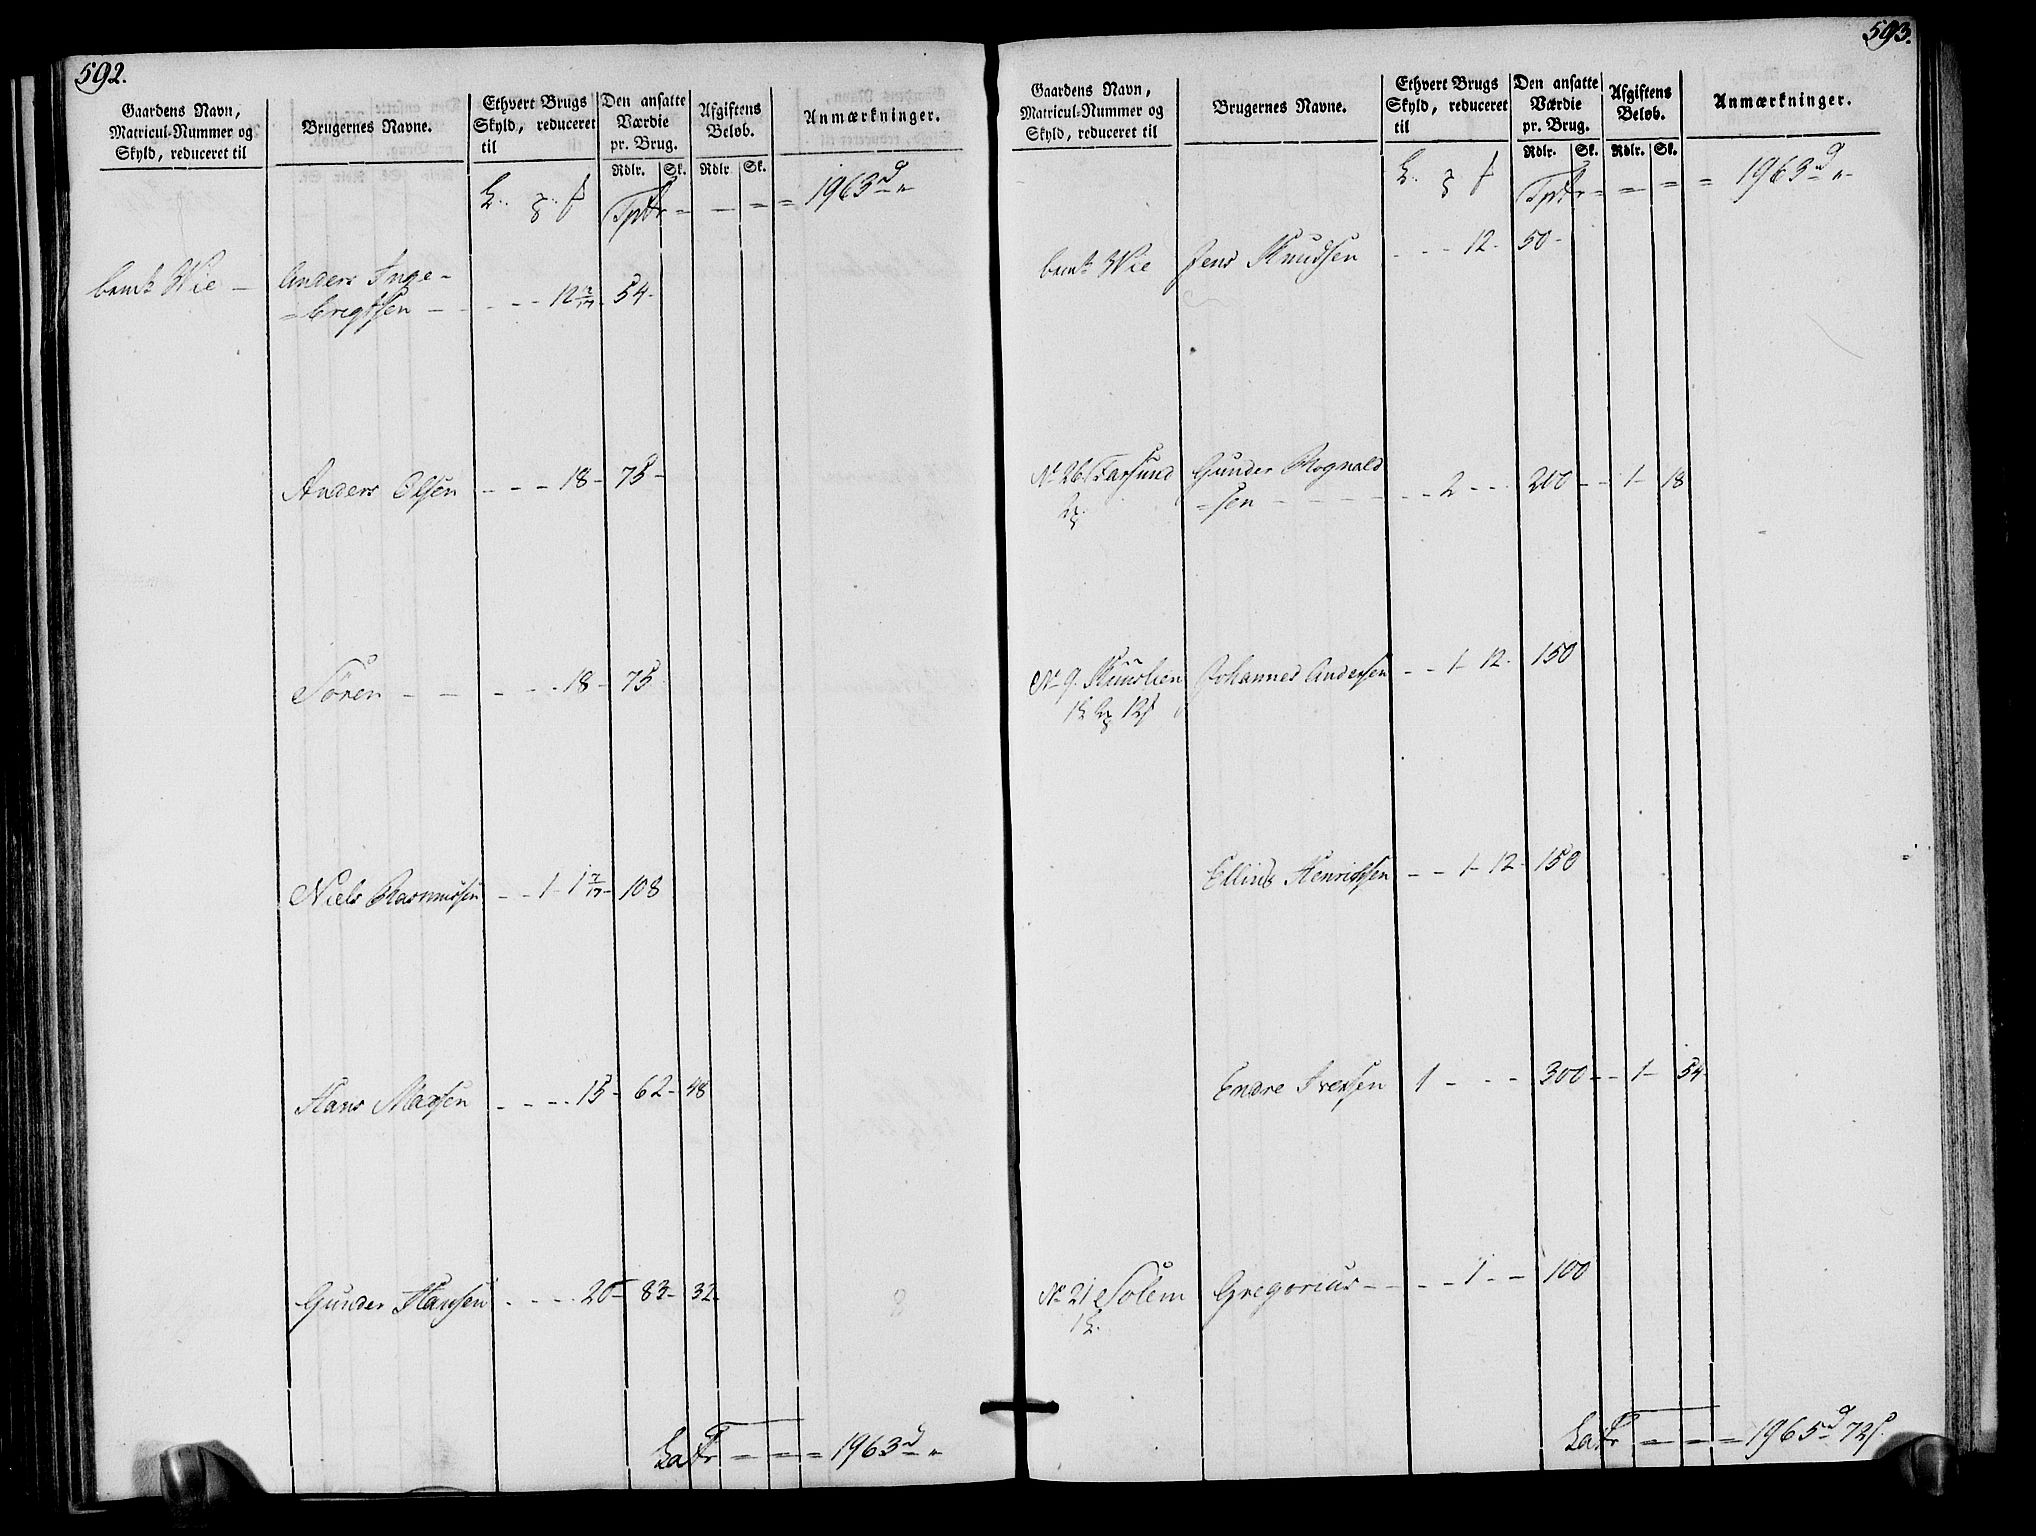 592.
Gaardens Navn, Matricul-Nummer og Skyld, reduceret til
Brugernes Navne.
Ethvert Brugs Skyld, reduceret til
Den ansatte Værdie pr. Brug.
Rdlr. Sk.
Afgiftens Beløb.
Rdlr. Sk.
Anmærkninger.
1963 d
Wie Anders Inge-
=brigtsen 12 54
Anders Olsen 18 75
Sören 18 75
Niels Rasmussen 1 1 108
Hans Maxsen 15 62 48
Gunder Hansen 20 83 32
Latr 1963 d
593.
Gaardens Navn, Matricul-Nummer og Skyld, reduceret til
Brugernes Navne.
Ethvert Brugs Skyld, reduceret til
Den ansatte Værdie pr. Brug.
Rdlr. Sk.
Afgiftens Beløb.
Rdlr. Sk.
Anmærkninger.
1963 d
Wie Jens Knudsen 12 50
No 26 Farsund Gunder Rognald
=sen 2 200 1 18
No 9. Johannes Andersen 1 12 150
Henrichsen 1 12 150
Endre Iversen 1 300 1 54
No 21 Solem Gregorius 1 100
Latr 1965 d 72